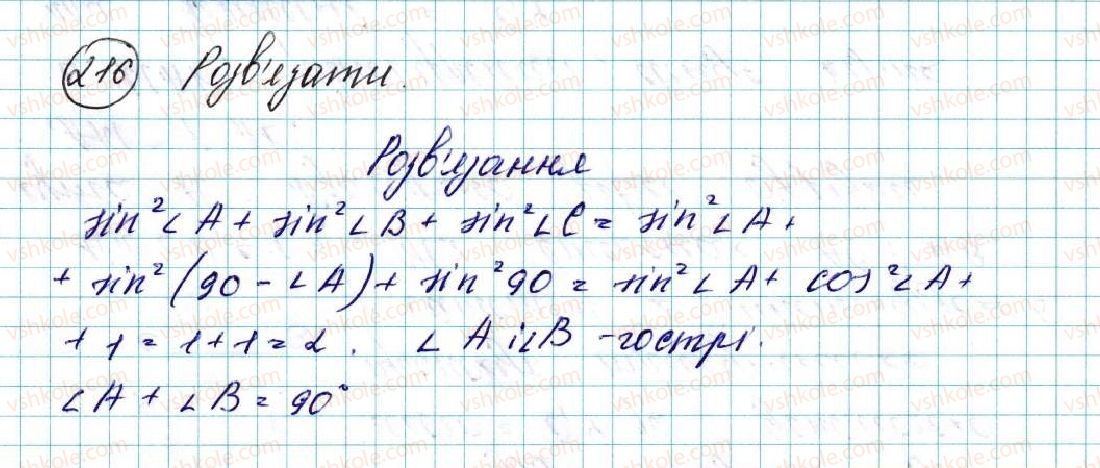 216 Розв'язати.
Розв'язання
sin²∠A + sin²∠B + sin²∠C = sin²∠A +
+ sin²(90 - ∠A) + sin²90 = sin²∠A + cos²∠A +
+ 1 = 1 + 1 = 2. ∠A і ∠B - гострі.
∠A + ∠B = 90°
vshkole.com